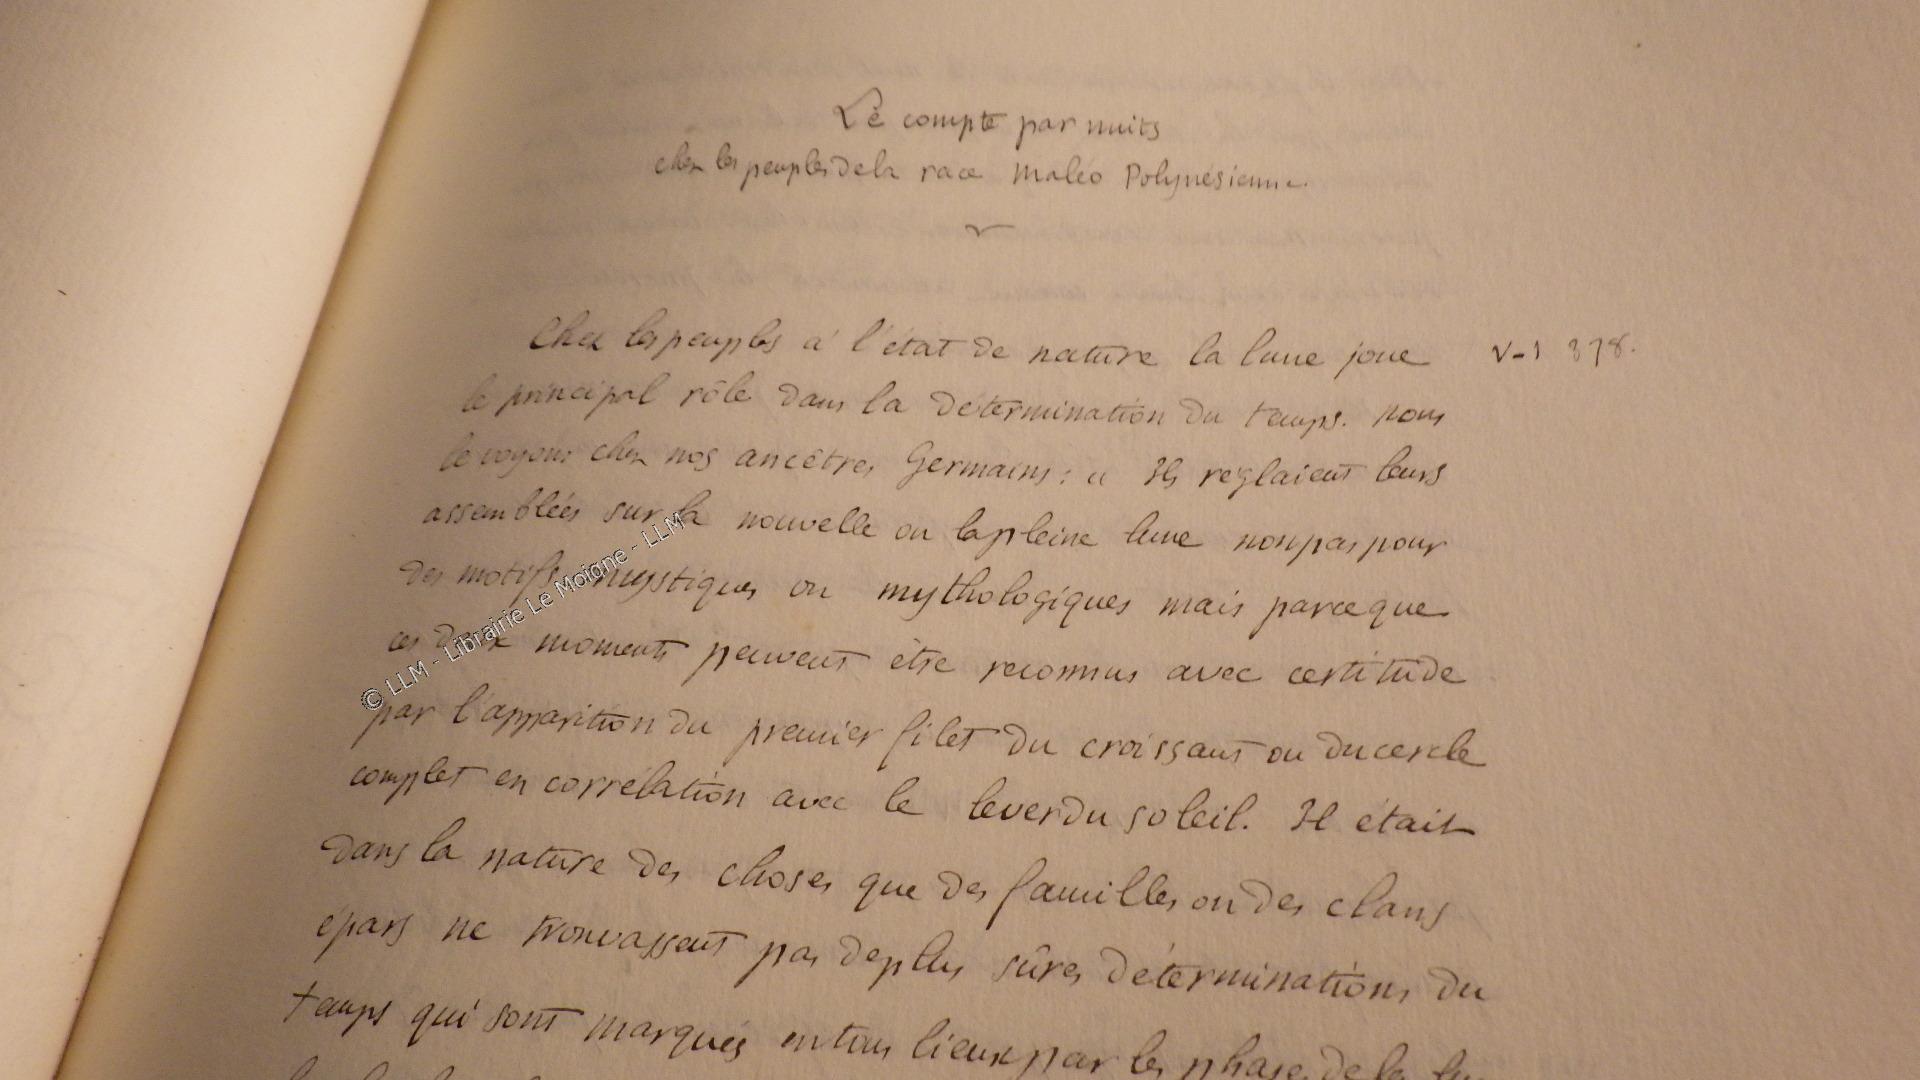 Le compte par nuits
chez les peuples de la race Maléo Polynésienne.
Chez les peuples à l'état de nature la lune joue
V-1 378.
le principal rôle dans la détermination du temps. nous
le voyons chez nos ancêtres Germains : « Ils réglaient leurs
assemblées sur la nouvelle ou la pleine lune non pas pour
des motifs mystiques ou mythologiques mais parce que
ces deux moments peuvent être reconnus avec certitude
par l'apparition du premier filet du croissant ou du cercle
complet en corrélation avec le lever du soleil. Il était
dans la nature des choses que des familles ou des clans
épars ne trouvassent pas de plus sûres déterminations du
temps qui sont marqués en tous lieux par les phases de la
© LLM - Librairie Le Moigne - LLM